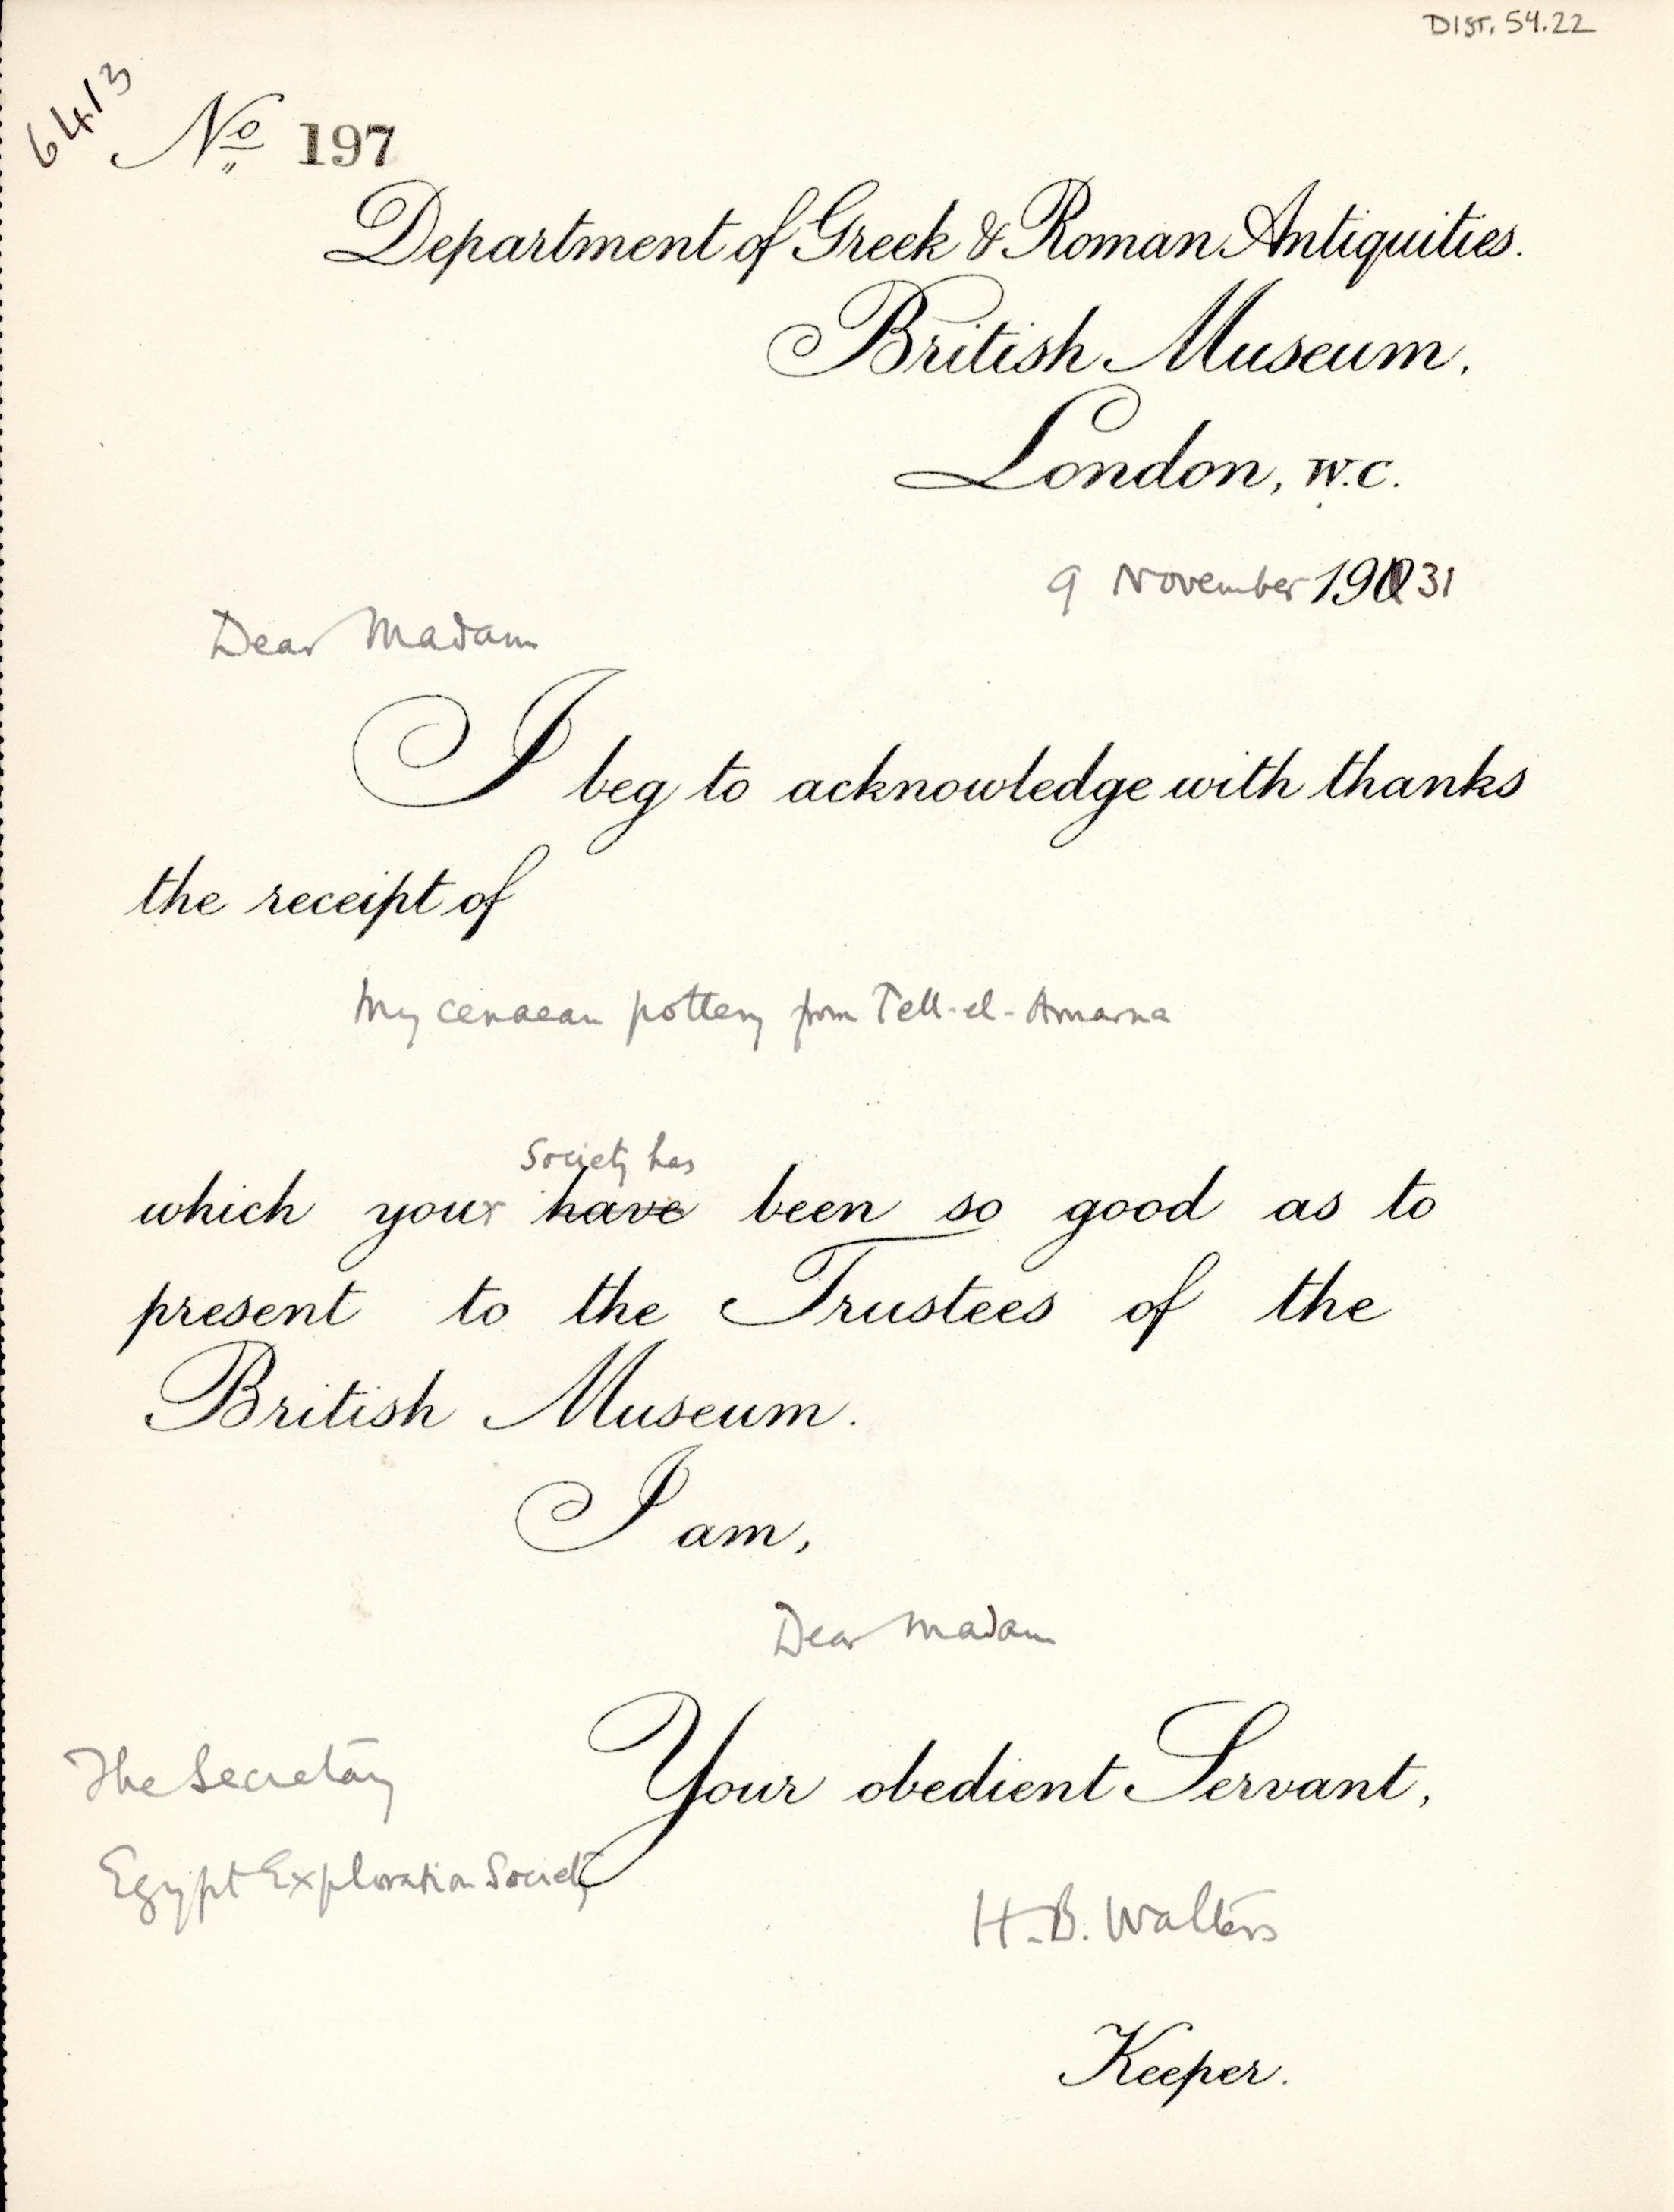 DIST. 54.22
6413
No 197
Department of Greek & Roman Antiquities.
British Museum,
London, W.C.
9 November 1931
Dear Madam
I beg to acknowledge with thanks
the receipt of
Mycenaean pottery from Tell-el-Amarna
Society has
which your have been so good as to
present to the Trustees of the
British Museum.
I am,
Dear Madam
Your obedient Servant,
The Secretary
Egypt Exploration Society
H.B. Walters
Keeper.